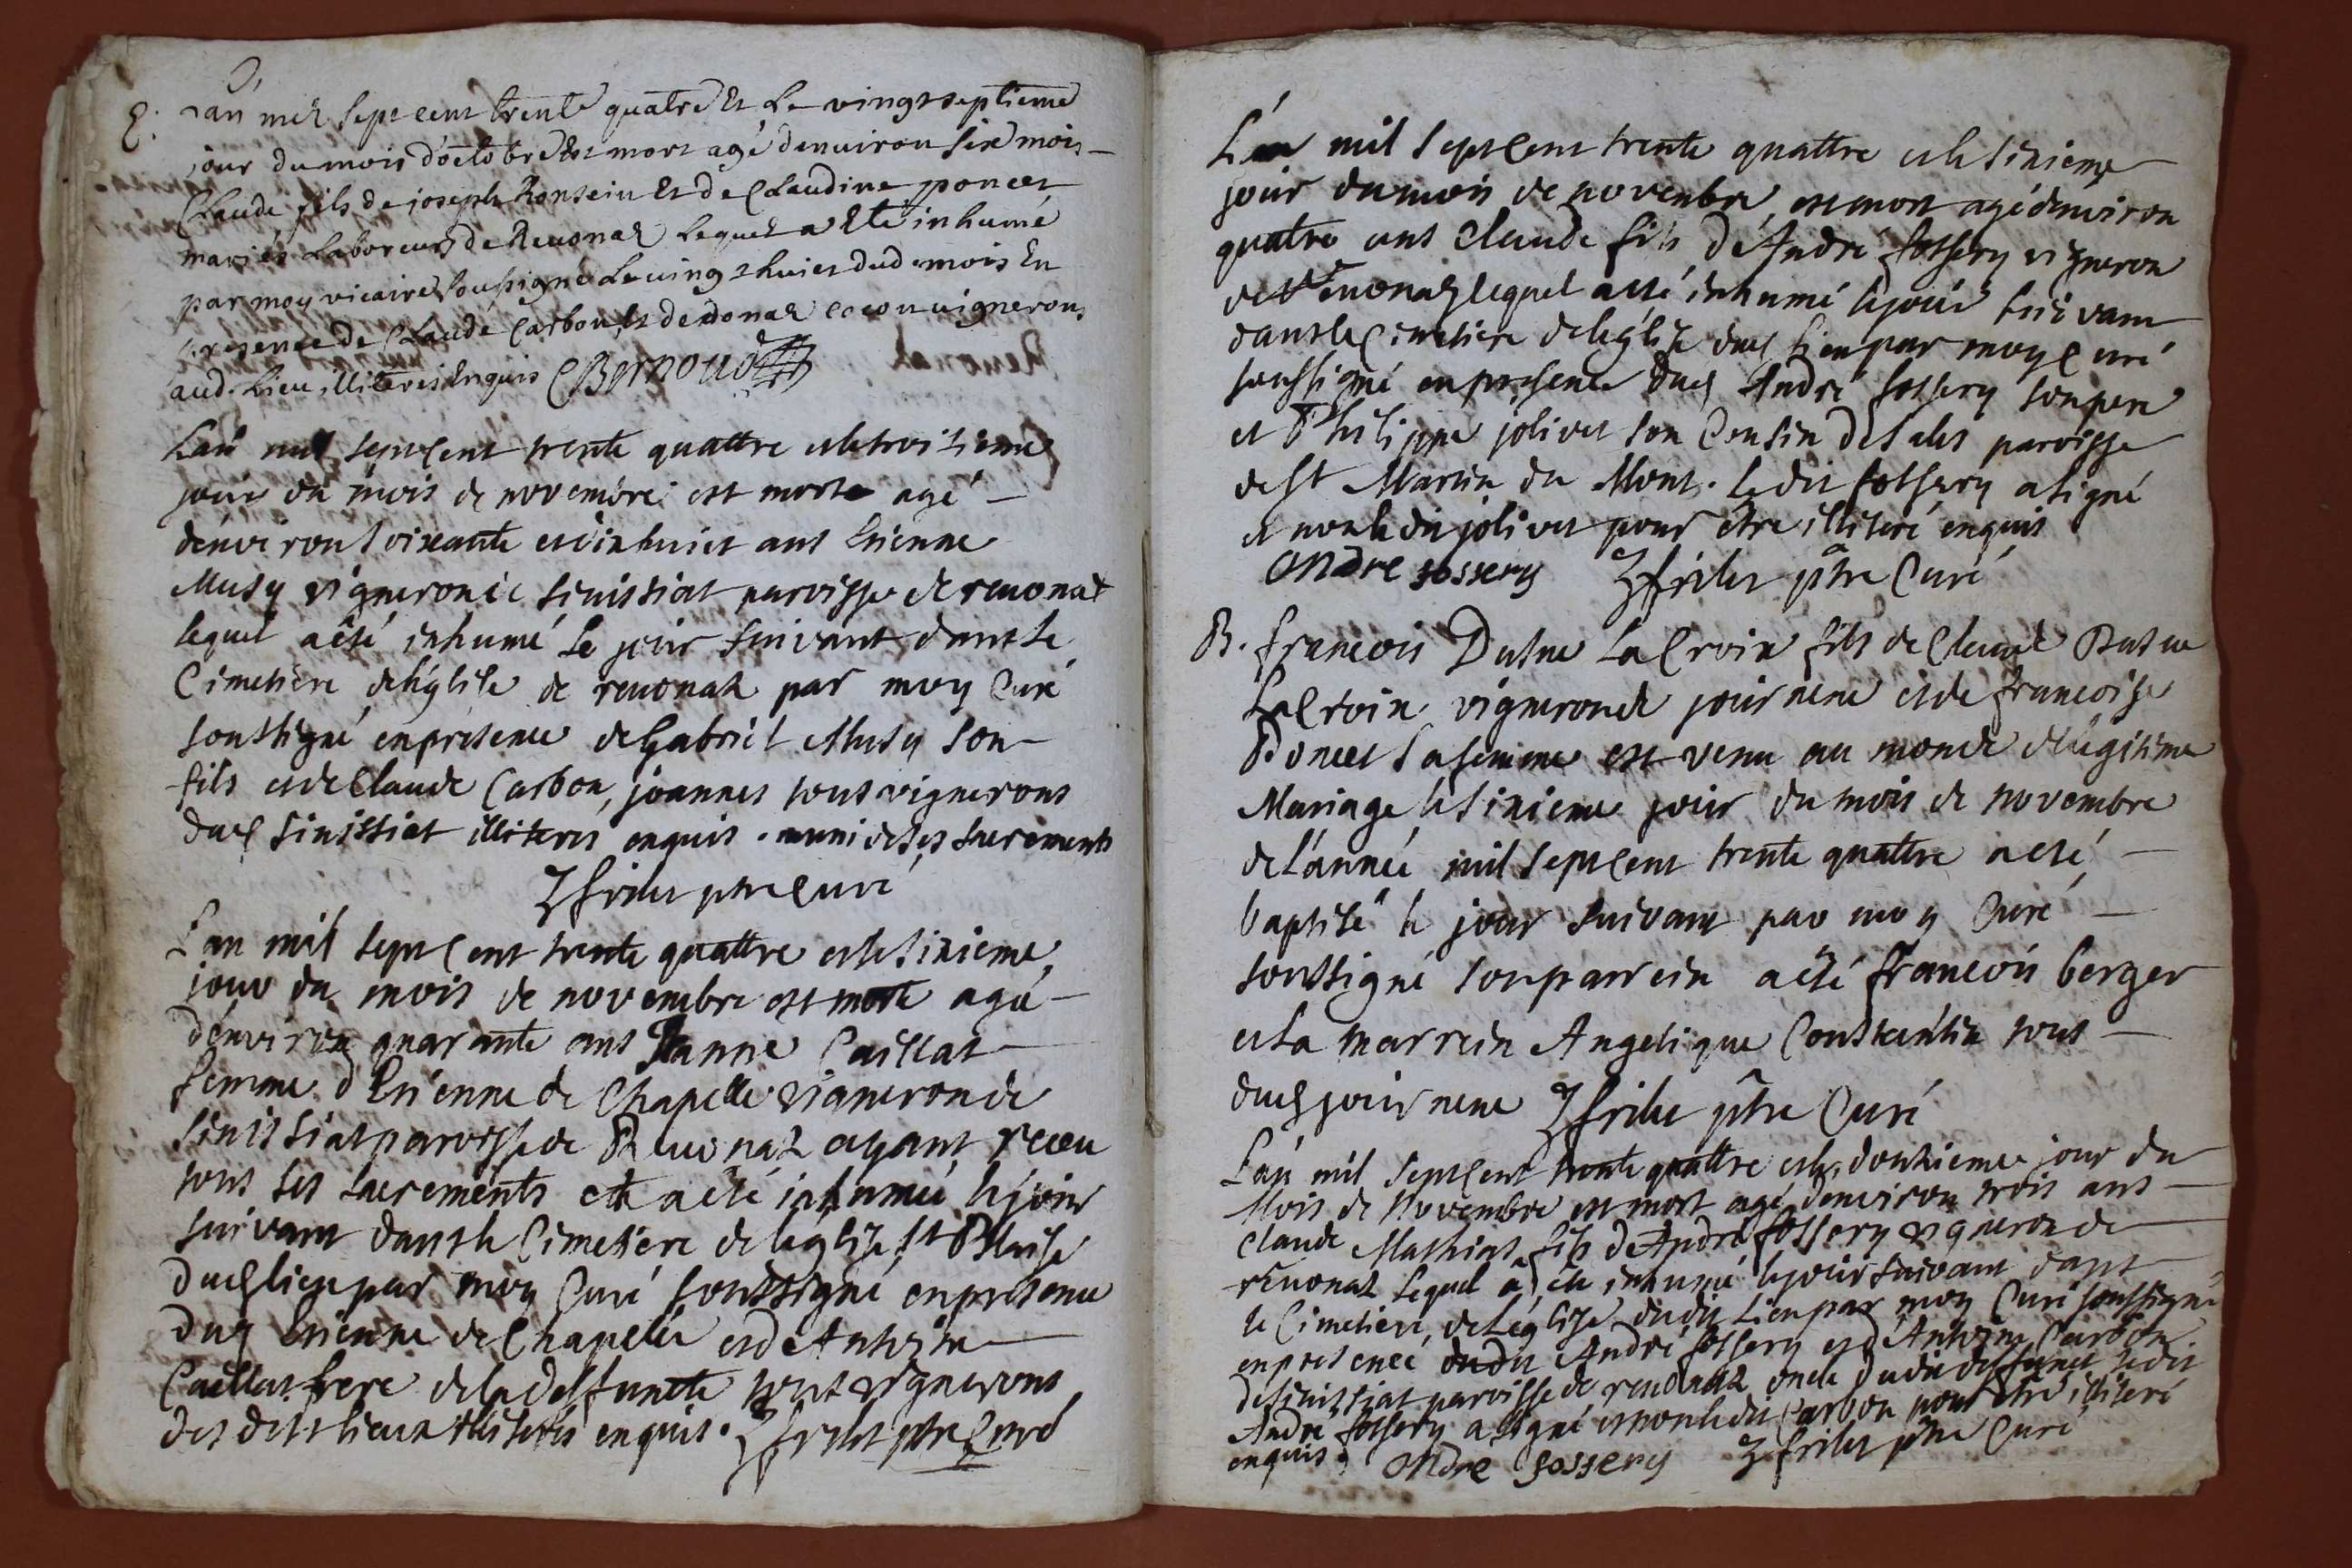 E. Lan mil sept cent trente quatre Et Le vingt septieme
jour du mois d'octobre Est mort agé denuiron six mois
Claude fils de joseph Ronsein Et de Claudine poncet
mariés Laboreurs de Reuonas Lequel a Eté inhumé
par moy vicaire soussigné Le uingt huict dud. mois En
presence de Claude Carbon, Et de donas cocon uignerons
aud. Lieu, illiterés Enquis CBernoud
Lan mil septcent trente quattre et le troisieme
jour du mois de novembre est mort agé
d'environ soixante et dix huict ans Etienne
Musy vigneron de Senissiat parroisse de reuonas
lequel a eté inhumé le jour suivant dans le
Cimetiere de l'église de reuonas par moy Curé
soussigné en présence de Gabriel Musy son
fils et de Claude Carbon, joannes tous vignerons
dud Sinissiat illiterés enquis. muni de ses sacrements
frilet ptre Curé
Lan mil sept cent trente quattre et le sixieme
jour du mois de novembre est morte agé
d'environ quarante ans Jeanne Caillat
femme d'Etienne de Chapelle vigneron de
Sinissiat parroisse de Reuonas ayant receu
tous ses sacrements elle a eté inhumée le jour
suivant dans le Cimetiere de l'église St Blaise
dud lieu par moy Curé soussigné en présence
dud Etienne de Chapelle et de Anthoine
Caillat frere de la deffuncte tous vignerons
des dits lieux illiterés enquis. frilet ptre Curé
L'an mil septcent trente quattre et le sixieme
jour du mois de novembre, est mort agé d'environ
quatre ans Claude fils d'André fossery vigneron
de Reuonas lequel a eté inhumé le jour suivant
dans le Cimetiere de l'église dud lieu par moy Curé
soussigné en présence dud André fossery son pere
et Philippe jolivet son Cousin de Salis parroisse
de St Martin du Mont. Ledit fossery a signé
et non le dit jolivet pour être illiteré enquis
Andre fossery frilet ptre Curé
B. francois Dusne LaCroix fils de Claude Dusne
LaCroix vigneron de journene et de francoise
Poncet sa femme est venu au monde de legitime
Mariage le sixieme jour du mois de novembre
de L'année mil septcent trente quattre a eté
baptisé le jour suivant par moy Curé
soussigné son parrein a eté francois berger
et La marrein Angelique Constantin tous
dud journene frilet ptre Curé
L'an mil septcent trente quattre et le douzieme jour du
Mois de Novembre est mort agé d'environ trois ans
Claude Mathias fils d'André fossery vigneron de
réuonas Lequel a été inhumé le jour suivant dans
le Cimetiere de L'église dudit Lieu par moy Curé soussigné
en présence dudit André fossery et d'Anthoine Carbon
de Sinissiat parroisse de reuonas oncle dudit deffunct Ledit
André fossery a signé et non ledit Carbon pour être illiteré
enquis. Andre fossery frilet ptre Curé